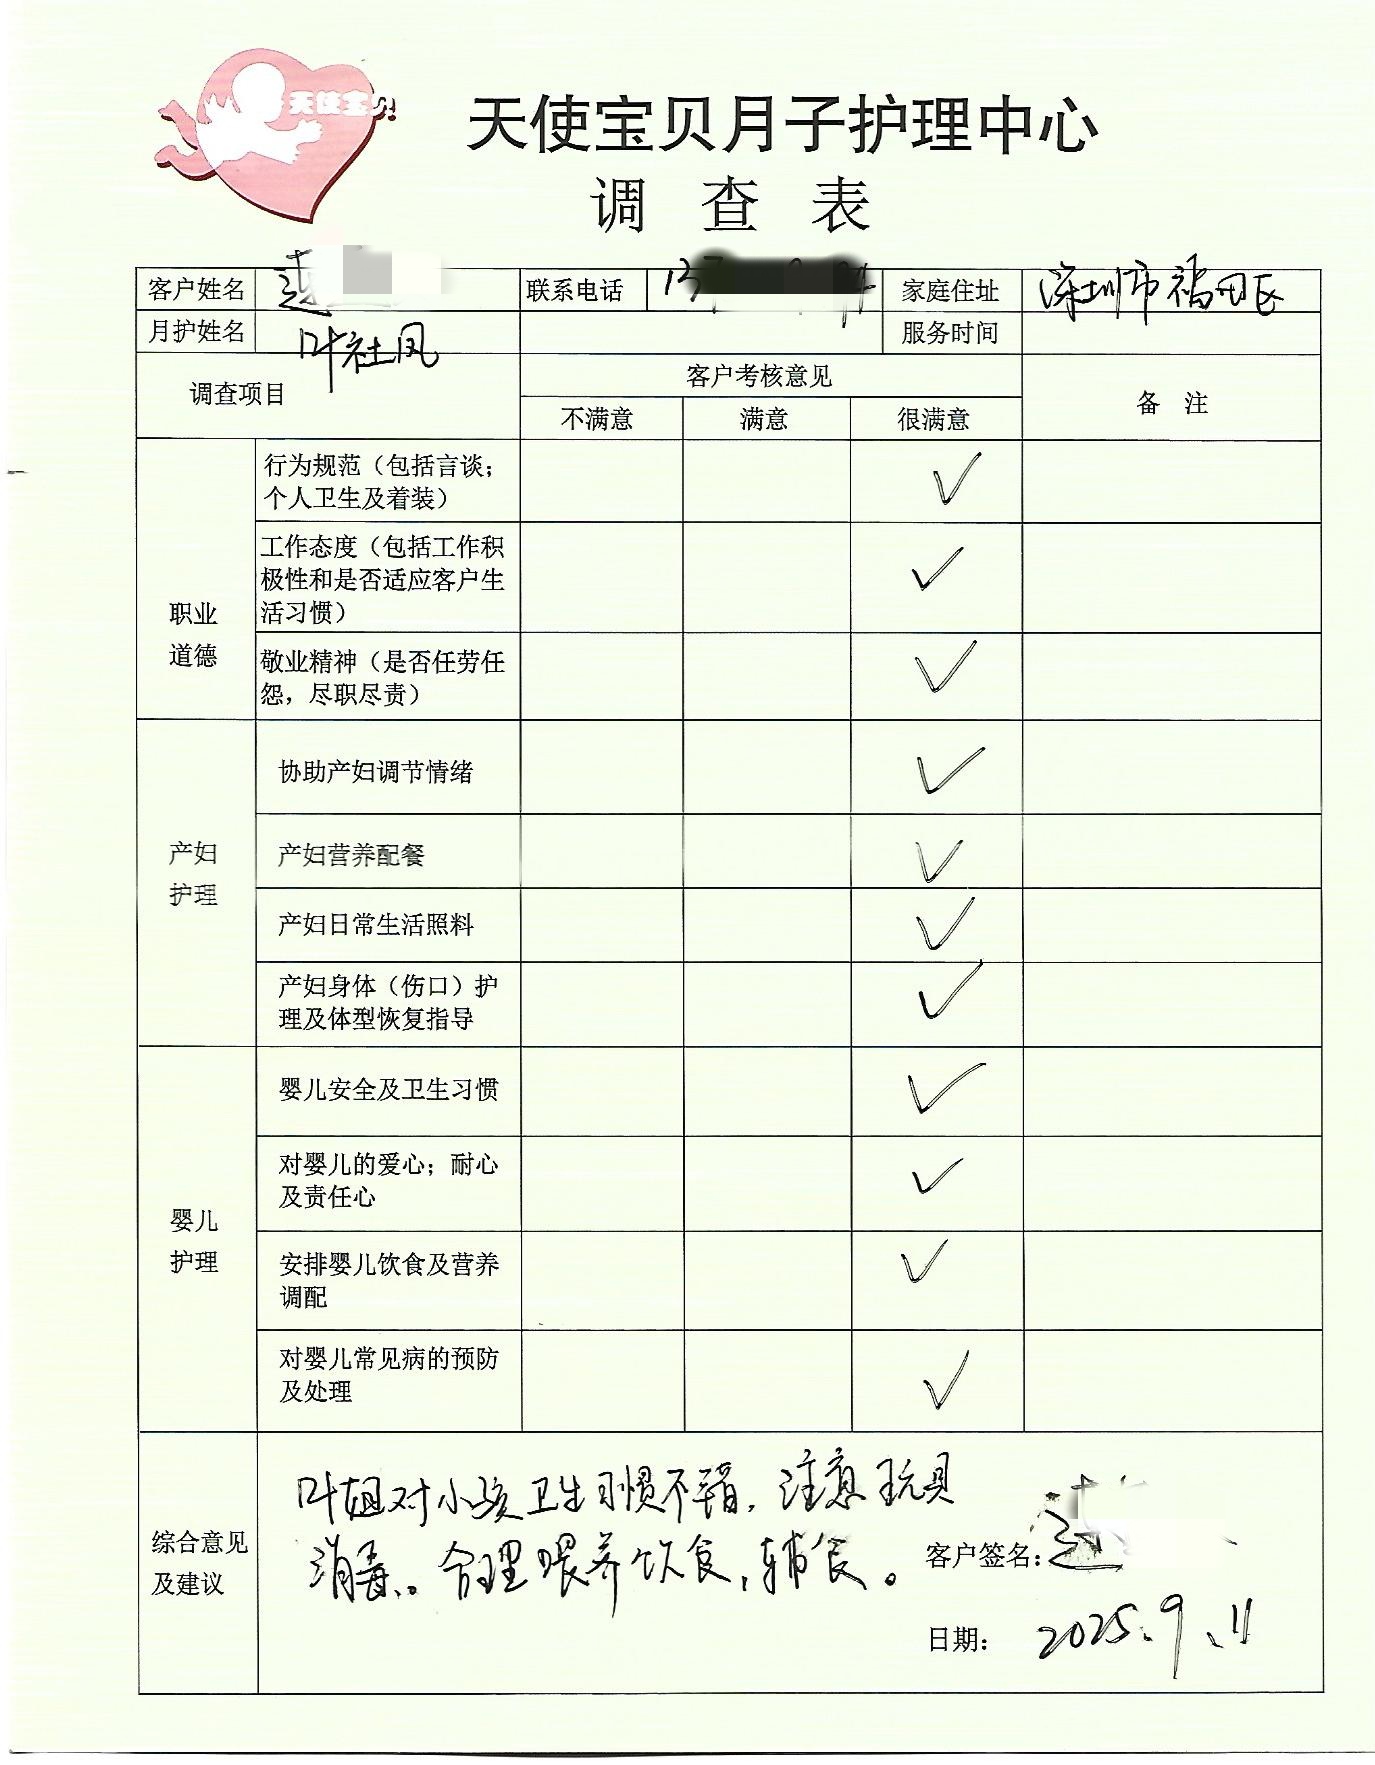 天使宝贝
天使宝贝月子护理中心
调 查 表
客户姓名 联系电话 家庭住址 深圳市福田区
月护姓名 叶社凤 服务时间
调查项目 客户考核意见 备 注
不满意 满意 很满意
职业
道德
行为规范（包括言谈；
个人卫生及着装） ✓
工作态度（包括工作积
极性和是否适应客户生
活习惯） ✓
敬业精神（是否任劳任
怨，尽职尽责） ✓
产妇
护理
协助产妇调节情绪 ✓
产妇营养配餐 ✓
产妇日常生活照料 ✓
产妇身体（伤口）护
理及体型恢复指导 ✓
婴儿
护理
婴儿安全及卫生习惯 ✓
对婴儿的爱心；耐心
及责任心 ✓
安排婴儿饮食及营养
调配 ✓
对婴儿常见病的预防
及处理 ✓
综合意见
及建议
叶姐对小孩卫生习惯不错，注意玩具
消毒。合理喂养饮食，辅食。
客户签名：
日期： 2025.9.11